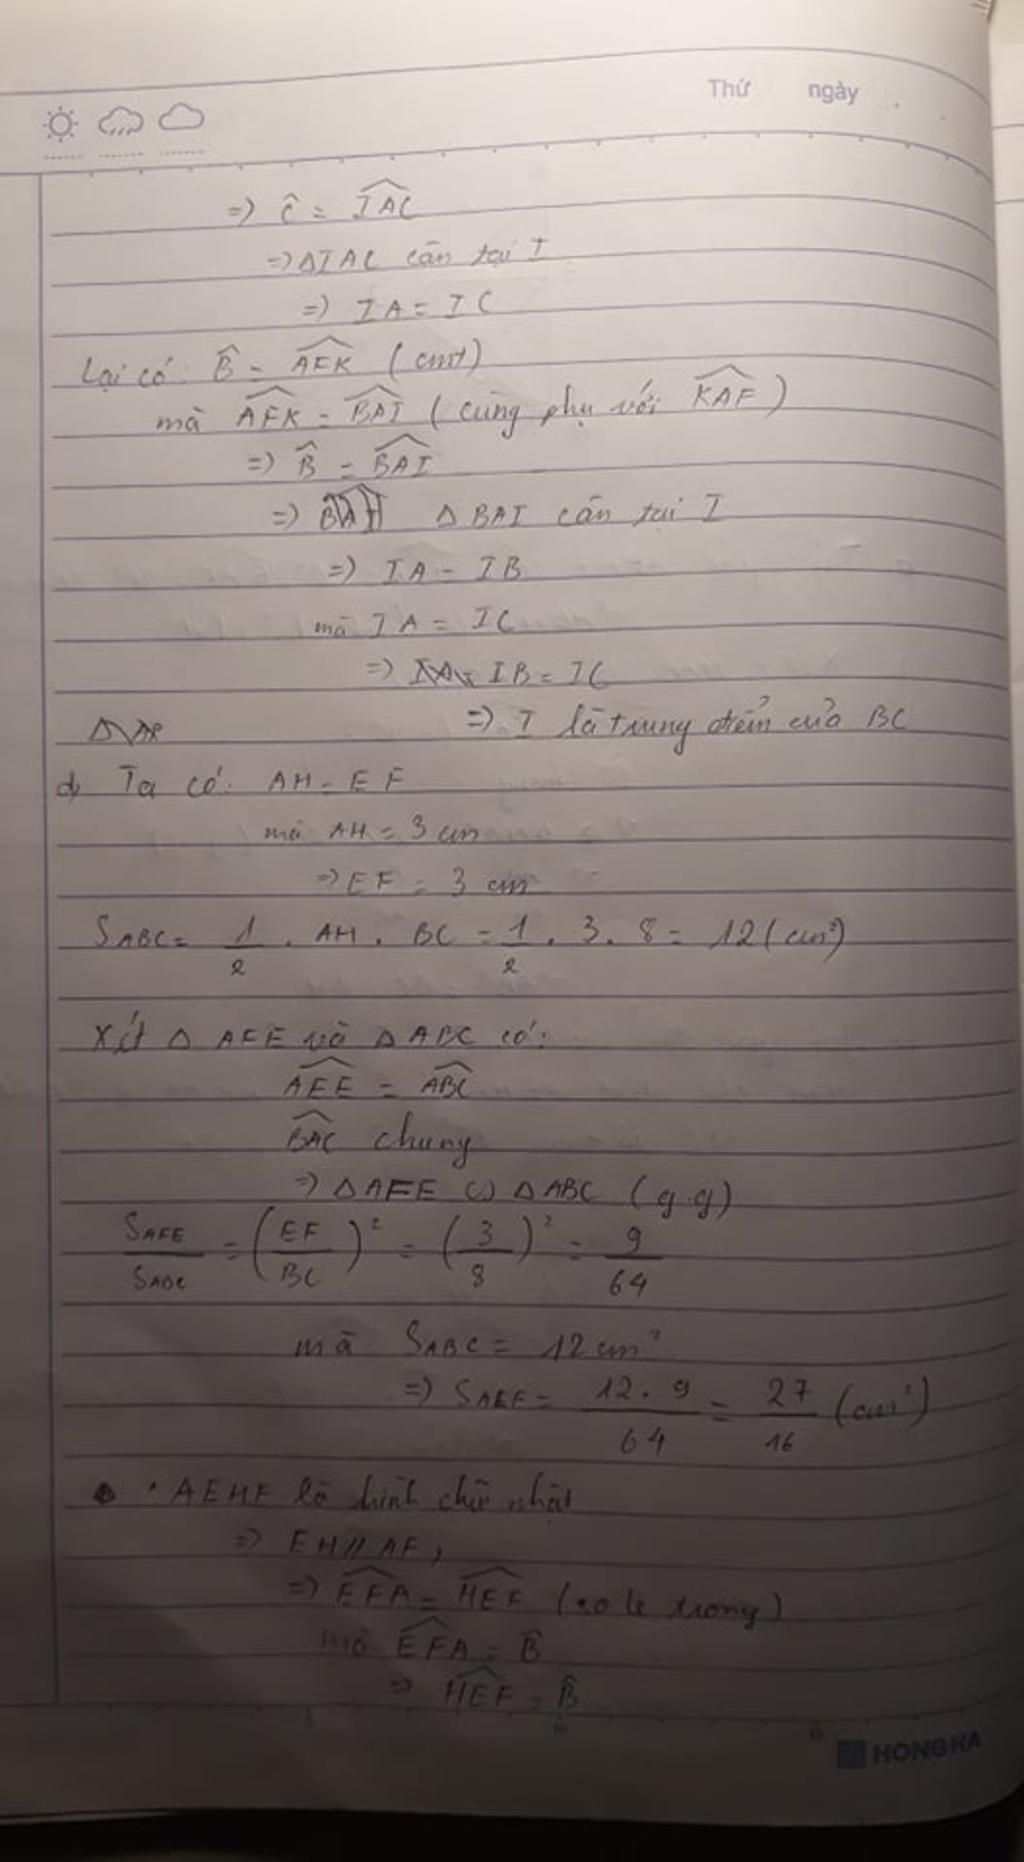 Thứ ngày
=> Ĉ = IAC
=> ΔIAC cân tại I
=> IA = IC
Lại có: B̂ = AFK (cmt)
mà AFK = BAI (cùng phụ với KAF)
=> B̂ = BAI
=> ΔBAI cân tại I
=> IA = IB
mà IA = IC
=> IB = IC
=> I là trung điểm của BC
d) Ta có: AH = EF
mà AH = 3 cm
=> EF = 3 cm
SABC = 1/2 . AH . BC = 1/2 . 3 . 8 = 12 (cm²)
Xét Δ AFE và Δ ABC có:
AFE = ABC
BAC chung
=> ΔAFE ∽ ΔABC (g.g)
SAFE/SABC = (EF/BC)² = (3/8)² = 9/64
mà SABC = 12 cm²
=> SAEF = 12 . 9/64 = 27/16 (cm²)
• AEHF là hình chữ nhật
=> EH // AF,
=> EFA = HEF (so le trong)
mà EFA = B̂
=> HEF = B̂
5 10 15
HONG HA